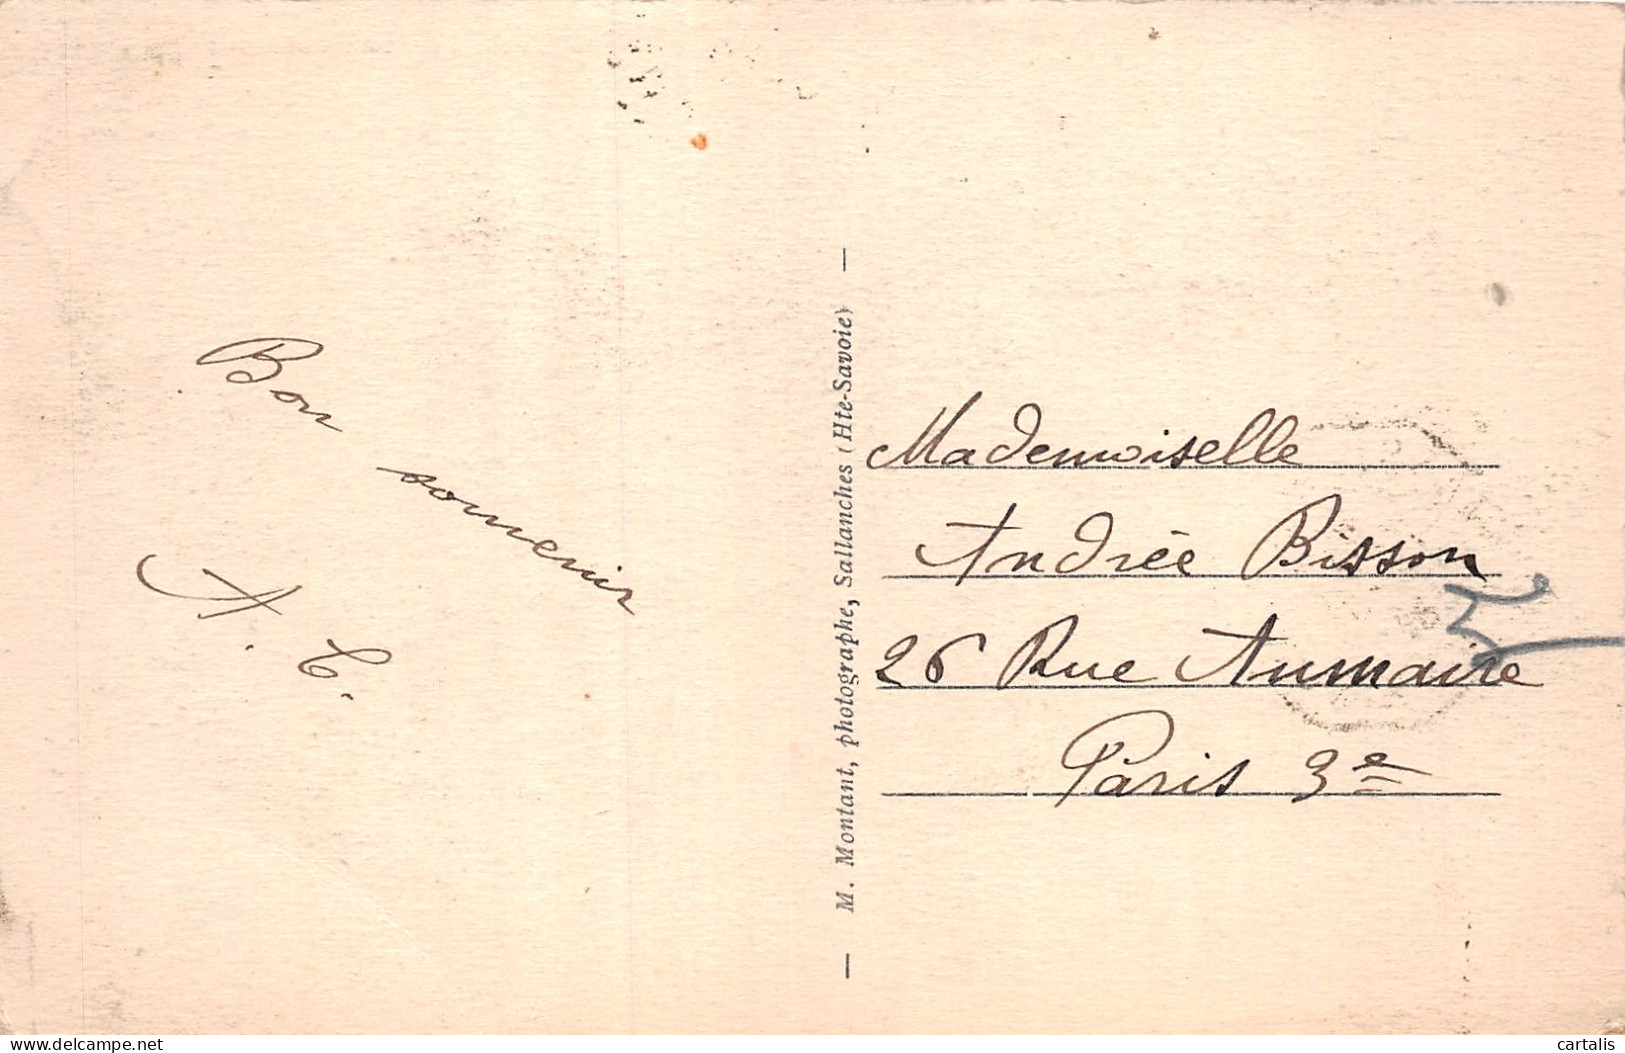 Bon souvenir
A. C.
— M. Montant, photographe, Sallanches (Hte-Savoie) —
Mademoiselle
Andrée Bisson
26 Rue Aumaire
Paris 3e
www.delcampe.net
cartalis